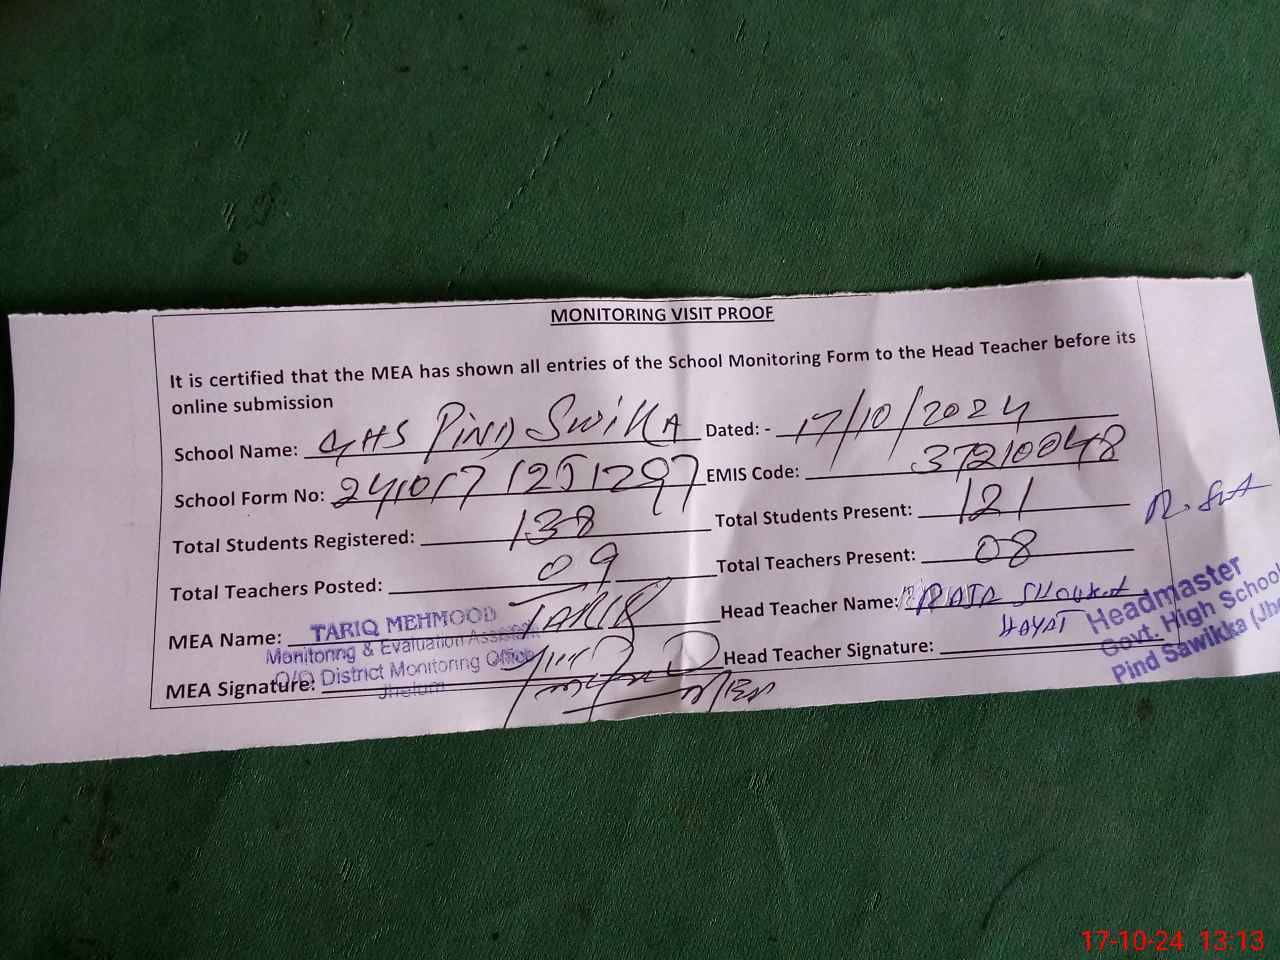 MONITORING VISIT PROOF
It is certified that the MEA has shown all entries of the School Monitoring Form to the Head Teacher before its
online submission
School Name: GHS PIND SWIKA Dated: - 17/10/2024
School Form No: 241017 1251297 EMIS Code: 37210048
Total Students Registered: 138 Total Students Present: 121
Total Teachers Posted: 09 Total Teachers Present: 08
MEA Name: TARIQ MEHMOOD TARIQ Head Teacher Name: RAJA SHOUKAT
HAYAT
Monitoring & Evaluation Assistant
MEA Signature: O/O District Monitoring Office MEA Head Teacher Signature:
Jhelum
Headmaster
Govt. High School
Pind Sawikka (Jh
17-10-24 13:13